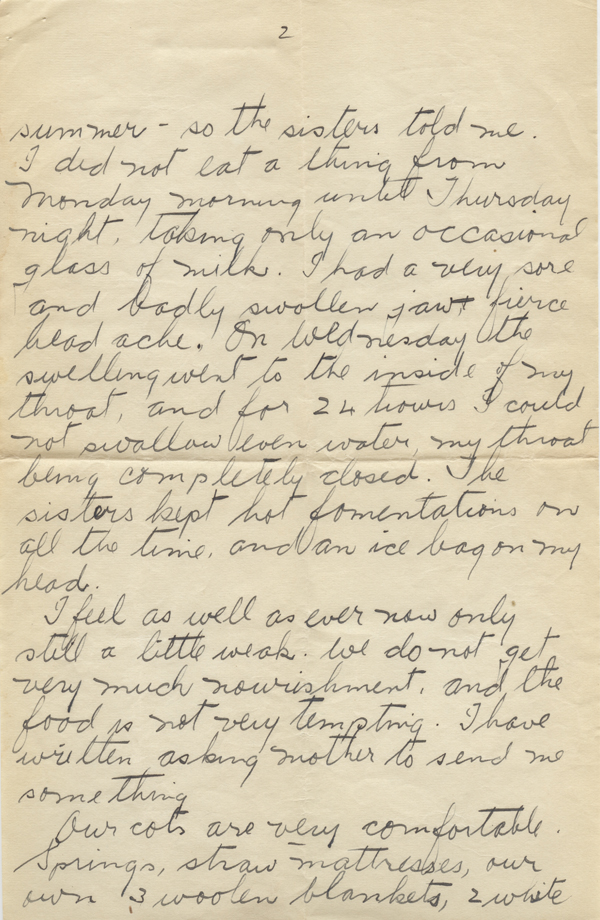 2
summer - so the sisters told me.
I did not eat a thing from
Monday morning until Thursday
night, taking only an occasional
glass of milk. I had a very sore
and badly swollen jaw + fierce
head ache. On Wednesday the
swelling went to the inside of my
throat, and for 24 hours I could
not swallow even water, my throat
being completely closed. The
sisters kept hot fomentations on
all the time, and an ice bag on my
head.
I feel as well as ever now only
still a little weak. We do not get
very much nourishment, and the
food is not very tempting. I have
written asking mother to send me
something
Our cots are very comfortable.
Springs, straw-mattresses, our
own 3 woolen blankets, 2 white